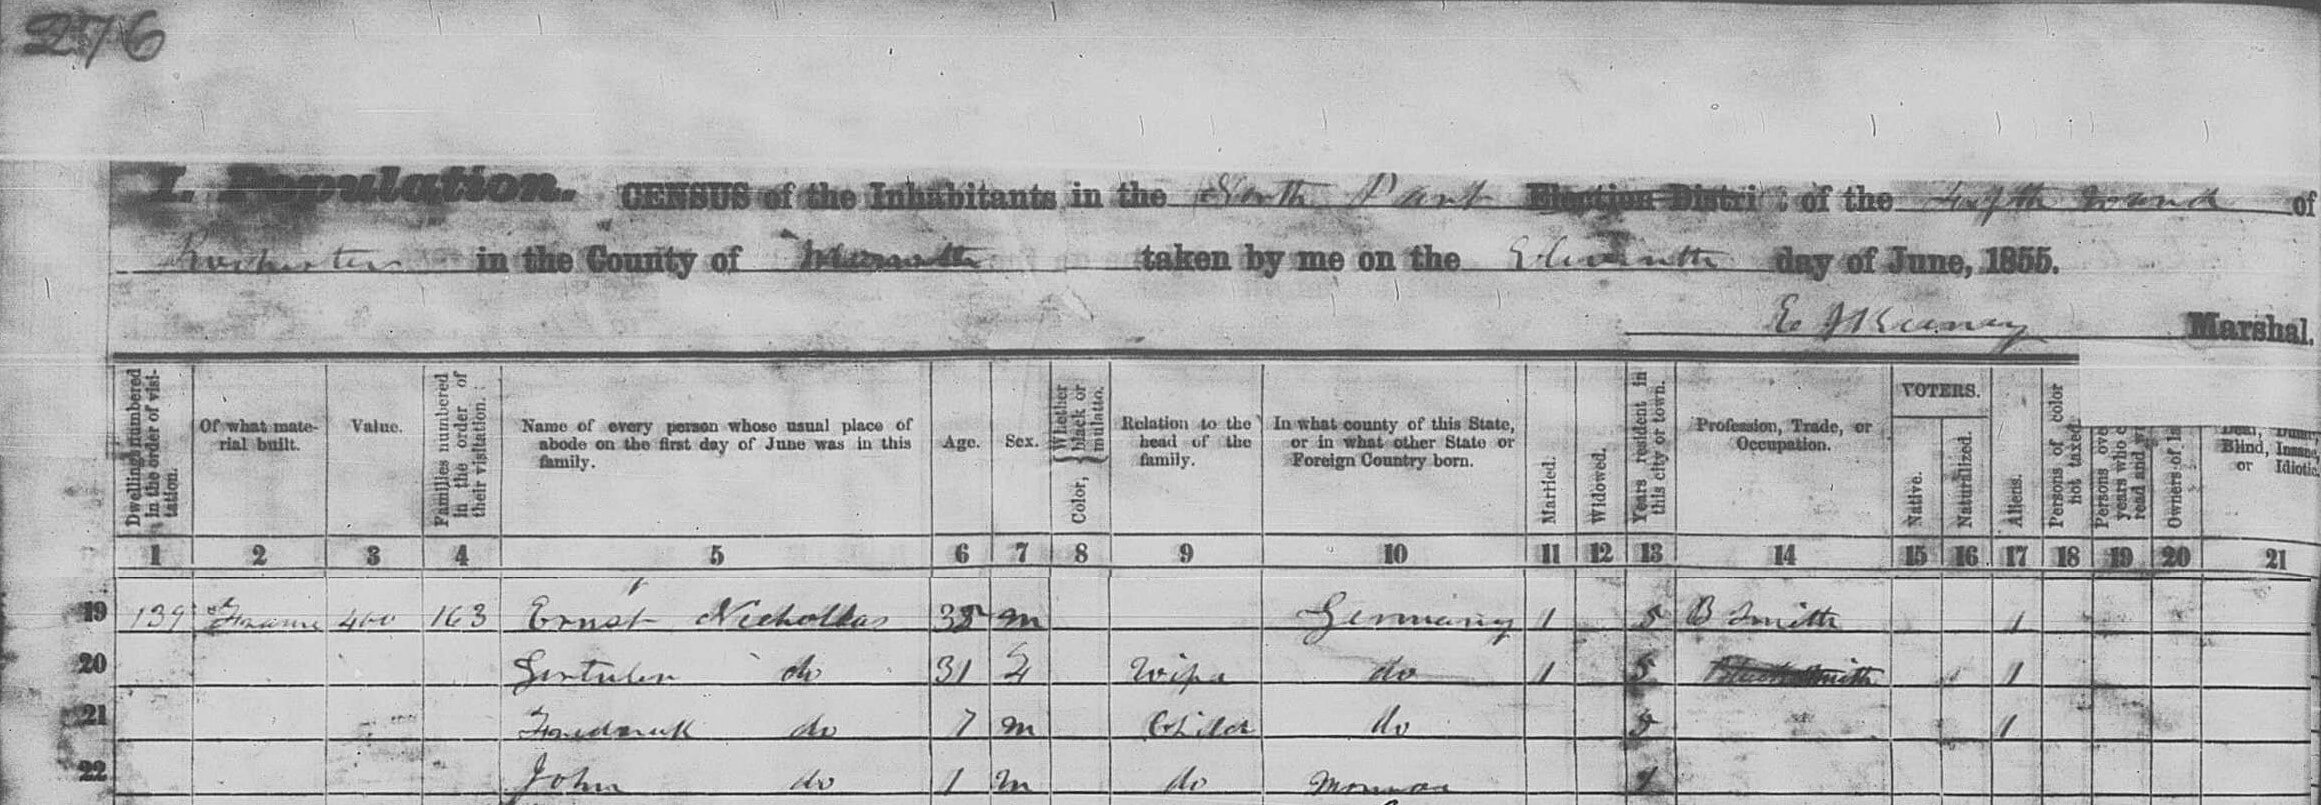 276
I. Population. CENSUS of the Inhabitants in the North Part Election District of the Ward of
Rochester in the County of Monroe taken by me on the Eleventh day of June, 1855.
Marshal.
Dwellings numbered in the order of visi-
tation.
Of what mate-
rial built.
Value.
Families numbered in the order of their visitation.
Name of every person whose usual place of
abode on the first day of June was in this
family.
Age.
Sex.
Color, { Whether black or mulatto.
Relation to the
head of the
family.
In what county of this State,
or in what other State or
Foreign Country born.
Married.
Widowed.
Years resident in this city or town.
Profession, Trade, or
Occupation.
VOTERS.
Native.
Naturalized.
Aliens.
Persons of color not taxed.
Persons ove
years who c
read and w
Owners of la
Deaf, Dumb,
Blind, Insane,
or Idiotic.
1 2 3 4 5 6 7 8 9 10 11 12 13 14 15 16 17 18 19 20 21
19 139 Frame 400 163 Ernst Nichollas m Germany 1 5 B Smith 1
20 do 31 F Wife do 1 5 1
21 Frederick do 7 m Child do 5 1
22 John do 1 m do Monroe 1